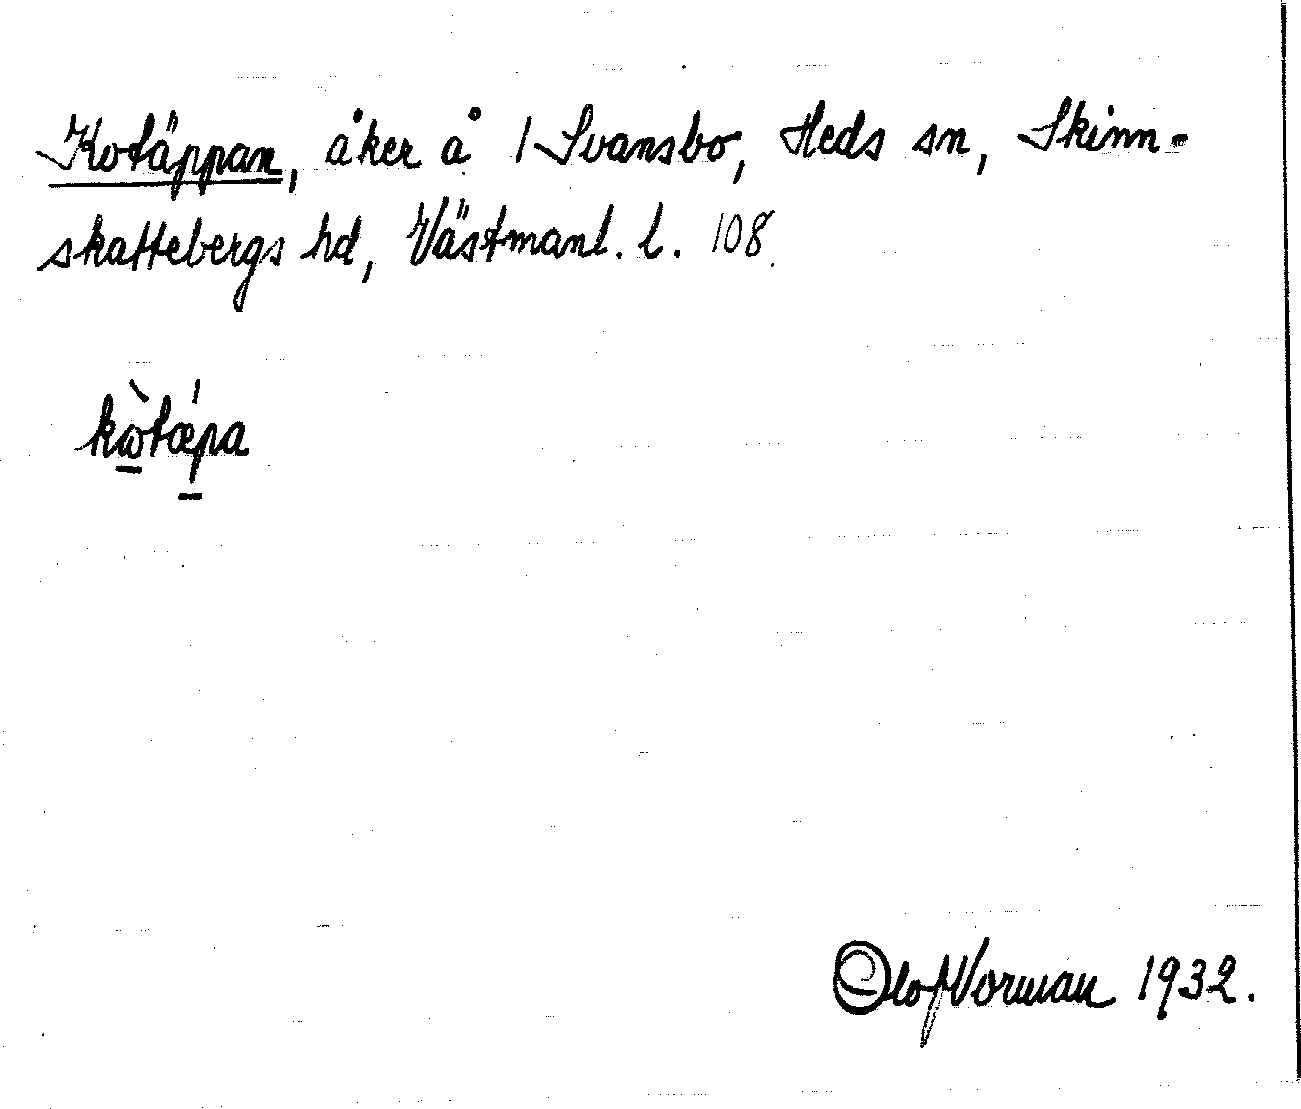 Kotäppan, åker å 1 Svansbo, Heds sn, Skinn-
skattebergs hd, Västmanl. l. 108.
kὼ̱tǽp̱a
Olof Norman 1932.